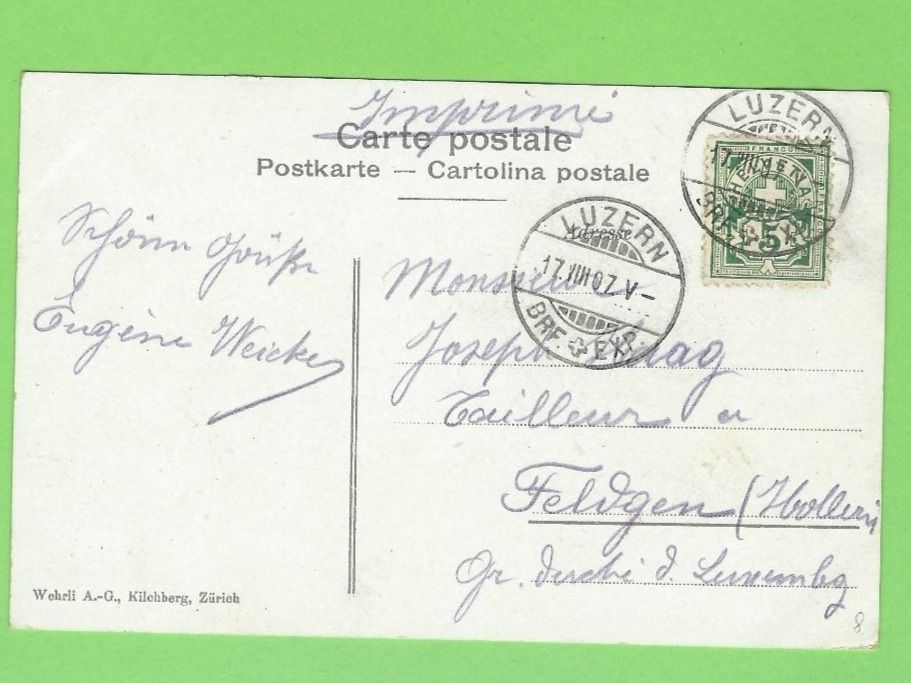 Imprimé
Carte postale
Postkarte — Cartolina postale
LUZERN
17.VIII
BRF. EXP.
FRANCO
HELVETIA
5
LUZERN
Adresse
17.VIII 07. V–
BRF. EXP.
Schöne Grüße
Eugène
Monsieur
Joseph
Tailleur a
Feldgen (Hollerich
Gr. duché d. Luxembg
Wehrli A.-G., Kilchberg, Zürich
8